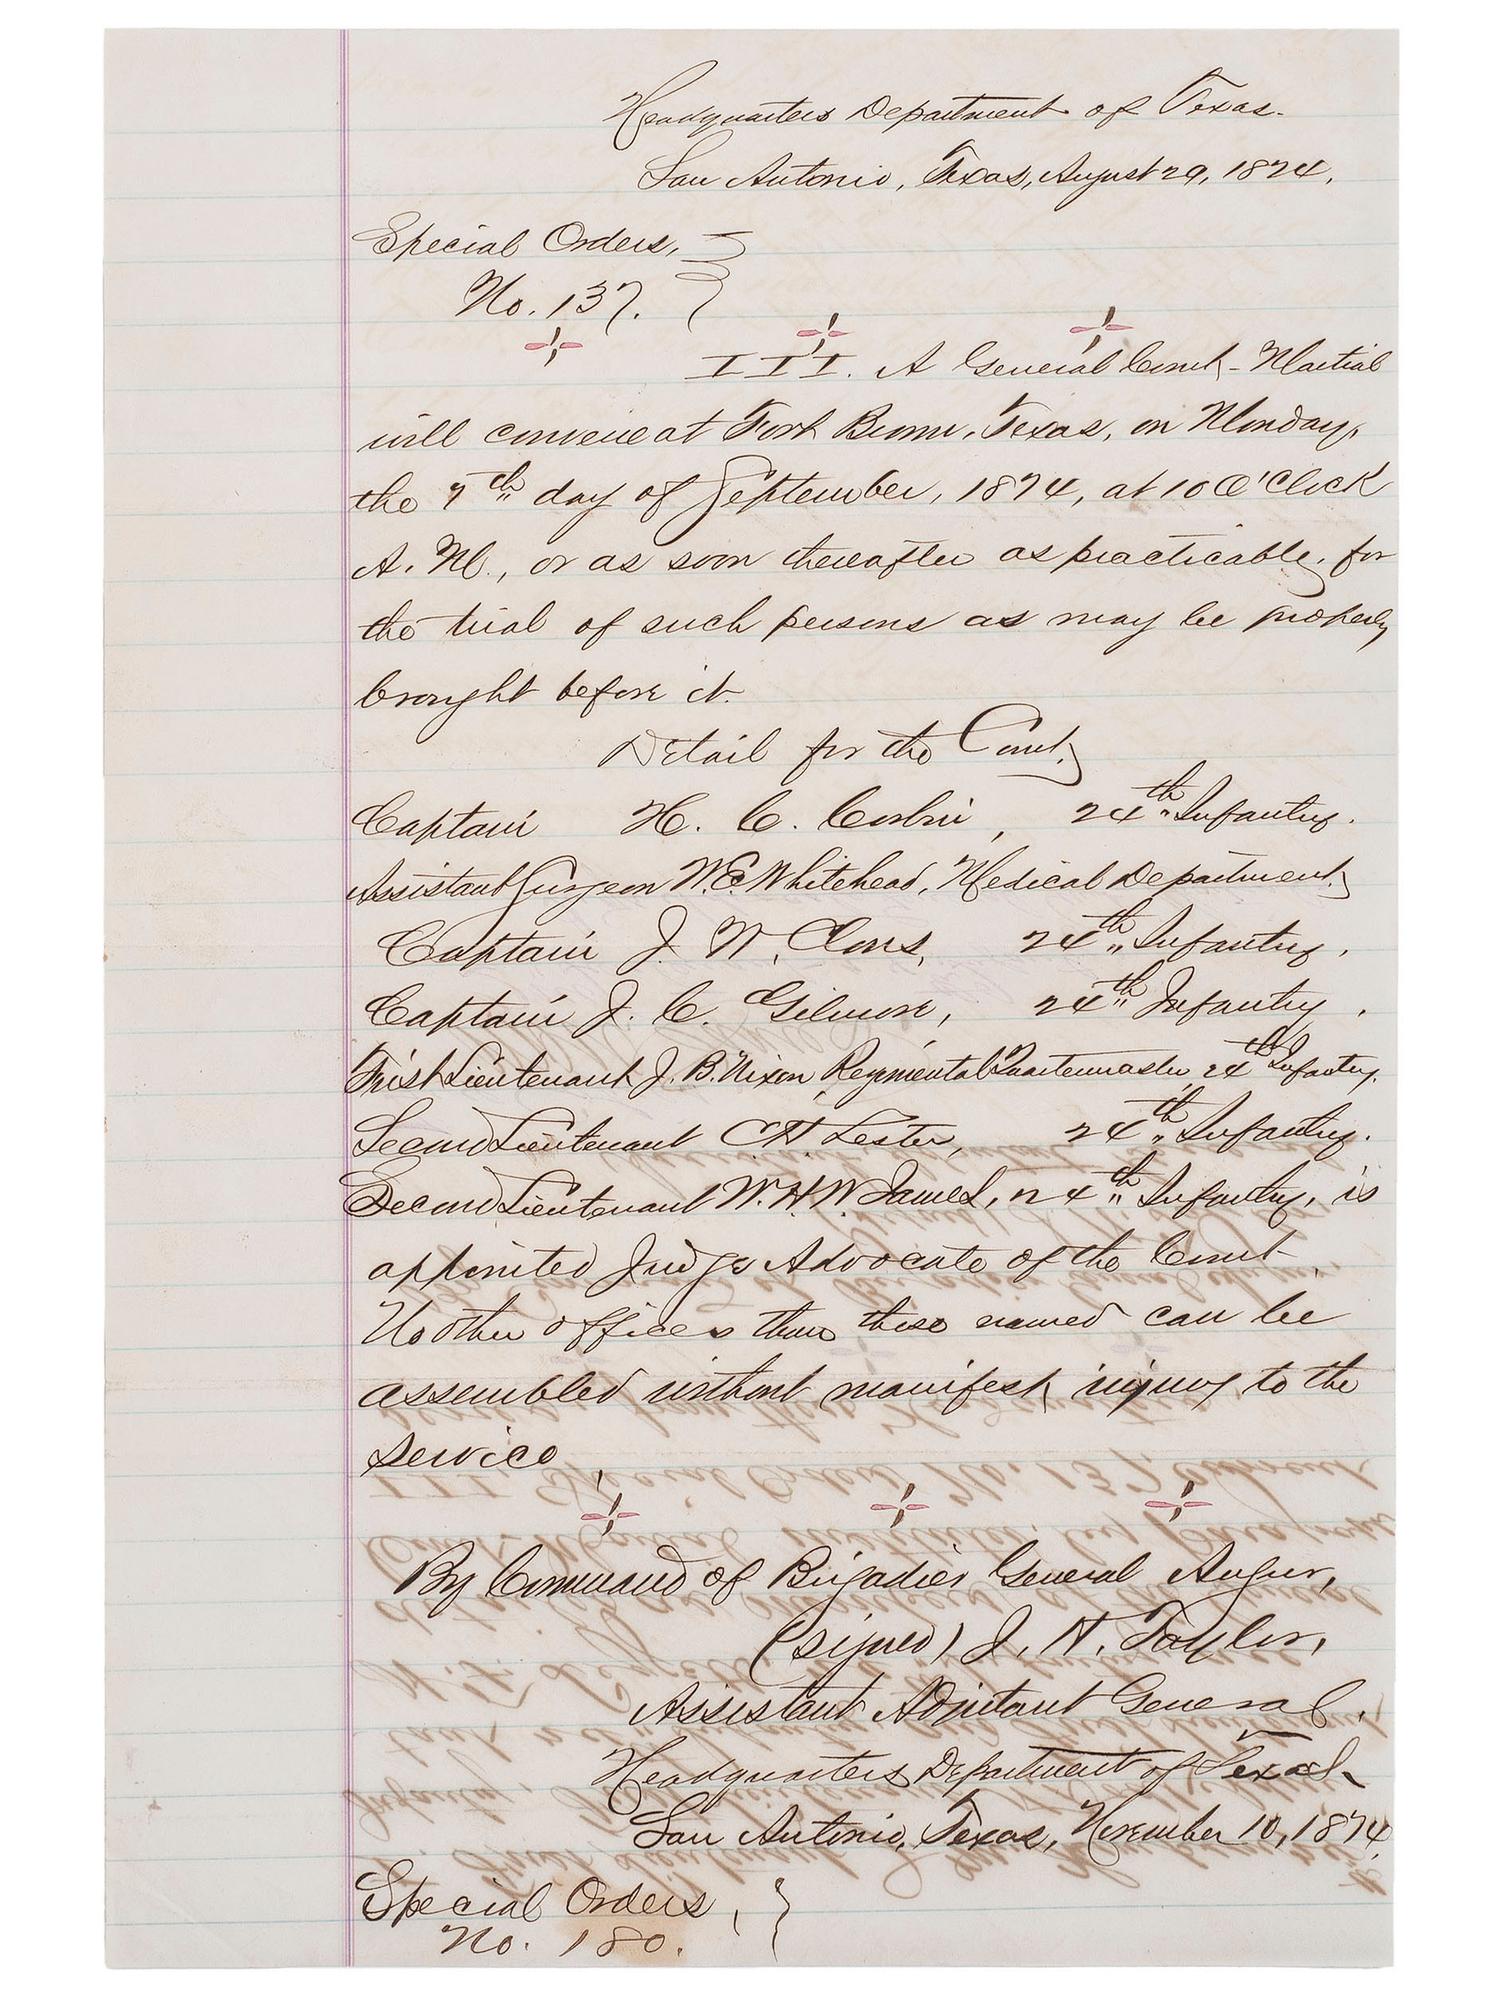 Headquarters Department of Texas.
San Antonio, Texas, August 29, 1874.
Special Orders,
No. 137.
III. A General Court-Martial
will convene at Fort Brown, Texas, on Monday,
the 7th day of September, 1874, at 10 O'Clock
A.M., or as soon thereafter as practicable, for
the trial of such persons as may be properly
brought before it.
Detail for the Court.
Captain H. C. Corbin, 24th Infantry.
Assistant Surgeon W. E. Whitehead, Medical Department.
Captain J. W. Clous, 24th Infantry.
Captain J. C. Gilmore, 24th Infantry.
First Lieutenant J. B. Nixon Regimental Quartermaster, 24th Infantry.
Second Lieutenant C. H. Lester, 24th Infantry.
Second Lieutenant W. H. W. James, 24th Infantry, is
appointed Judge Advocate of the Court.
No other officers than those named can be
assembled without manifest injury to the
service.
By Command of Brigadier General Augur,
(signed) J. H. Taylor,
Assistant Adjutant General.
Headquarters Department of Texas.
San Antonio, Texas, November 10, 1874.
Special Orders,
No. 180.